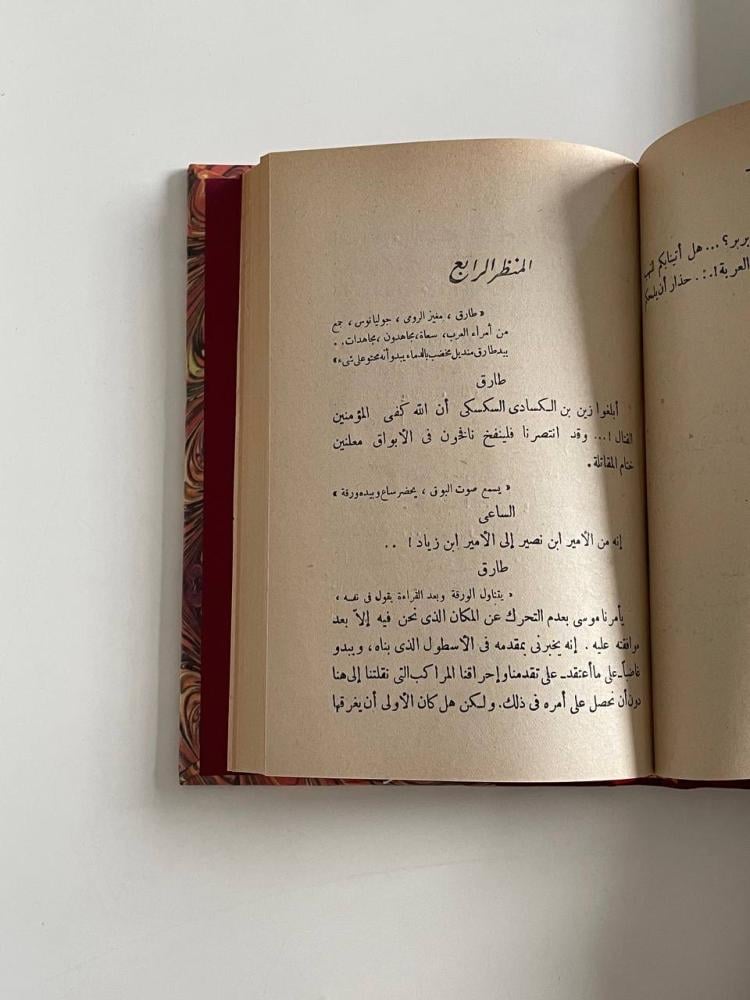 المنظر الرابع
« طارق ، مغيز الرومى ، جوليانوس ، جمع
من أمراء العرب، سعاة، مجاهدون ، مجاهدات . .
بيد طارق منديل مخضب بالدماء يبدو أنه محتو على شىء »
طارق
أبلغوا زين بن الكسادى السكسكى أن الله كفى المؤمنين
القتال !... وقد انتصرنا فلينفخ نافخون فى الأبواق معلنين
ختام المقاتلة .
« يسمع صوت البوق ، يحضر ساع وبيده ورقة »
الساعى
إنه من الأمير ابن نصير إلى الأمير ابن زياد ! . .
طارق
« يتناول الورقة وبعد القراءة يقول فى نفسه ،
يأمرنا موسى بعدم التحرك عن المكان الذى نحن فيه إلاّ بعد
موافقته عليه . إنه يخبرنى بمقدمه فى الأسطول الذى بناه ، ويبدو
غاضباً ـ على ما أعتقد ـ على تقدمنا وإحراقنا المراكب التى نقلتنا إلى هنا
دون أن نحصل على أمره فى ذلك. ولكن هل كان الأولى أن يغرقها
بربر ؟ ... هل أتينا بكم
العربة !. : . حذار أن